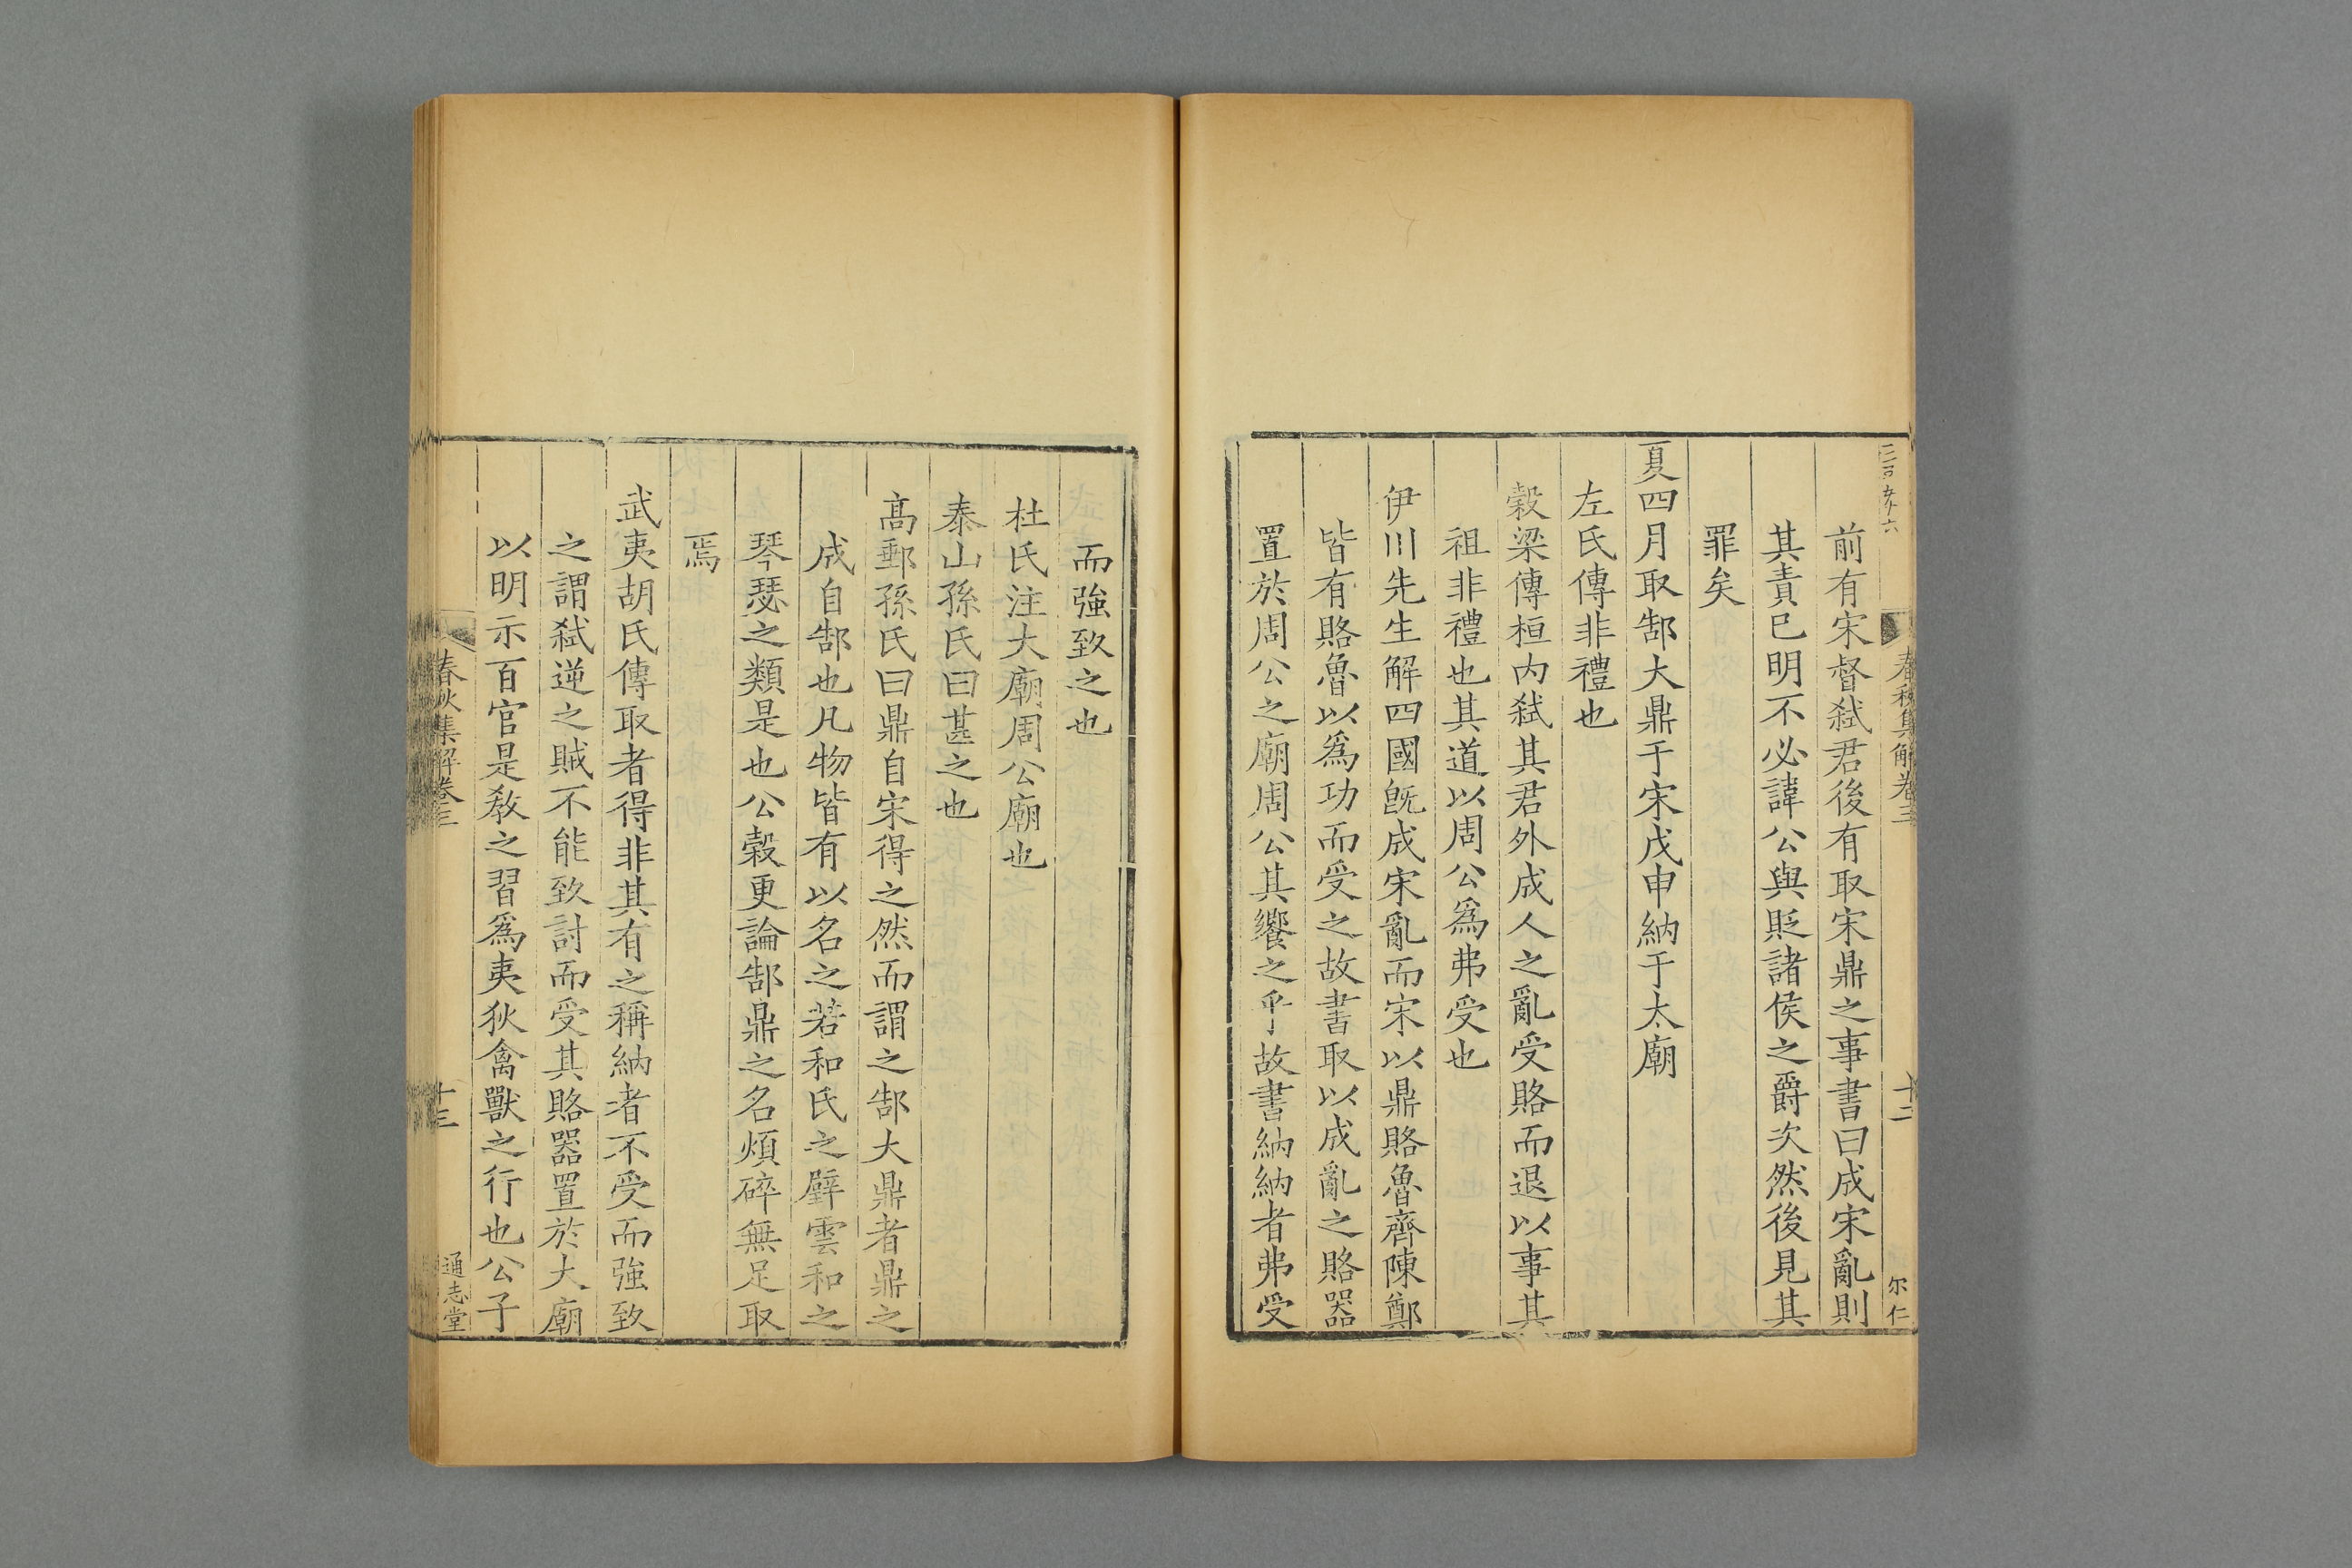 春秋集解卷三
十二
尔仁
前有宋督弑君後有取宋鼎之事書曰成宋亂則
其責已明不必諱公與貶諸侯之爵次然後見其
罪矣
夏四月取郜大鼎于宋戊申納于太廟
左氏傳非禮也
榖梁傳桓内弑其君外成人之亂受賂而退以事其
祖非禮也其道以周公爲弗受也
伊川先生解四國旣成宋亂而宋以鼎賂魯齊陳鄭
皆有賂魯以爲功而受之故書取以成亂之賂器
置於周公之廟周公其饗之乎故書納納者弗受
而強致之也
杜氏注大廟周公廟也
泰山孫氏曰甚之也
髙郵孫氏曰鼎自宋得之然而謂之郜大鼎者鼎之
成自郜也凡物皆有以名之若和氏之璧雲和之
琴瑟之類是也公榖更論郜鼎之名煩碎無足取
焉
武夷胡氏傳取者得非其有之稱納者不受而強致
之謂弑逆之賊不能致討而受其賂器置於大廟
以明示百官是教之習爲夷狄禽獸之行也公子
春秋集解卷三
十三
通志堂